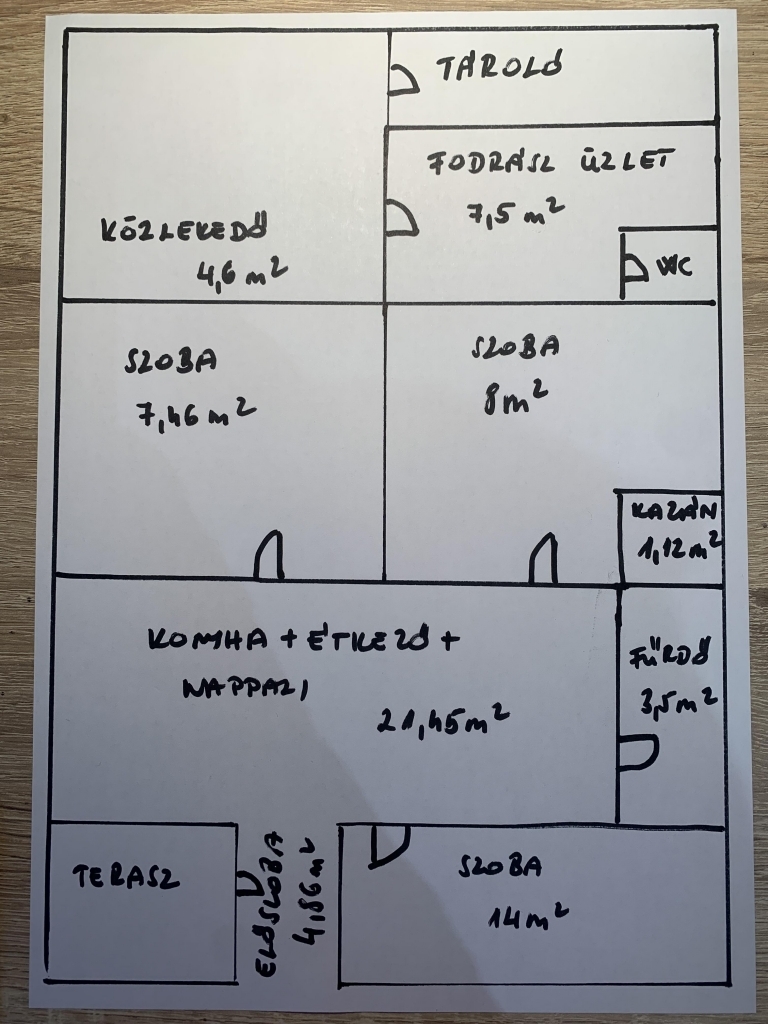 TÁROLÓ
FODRÁSZ ÜZLET
7,5 m²
WC
KÖZLEKEDŐ
4,6 m²
SZOBA
7,46 m²
SZOBA
8 m²
KAZÁN
1,12 m²
KONYHA + ÉTKEZŐ +
NAPPALI
21,45 m²
FÜRDŐ
3,5 m²
TERASZ
ELŐSZOBA
4,86 m²
SZOBA
14 m²